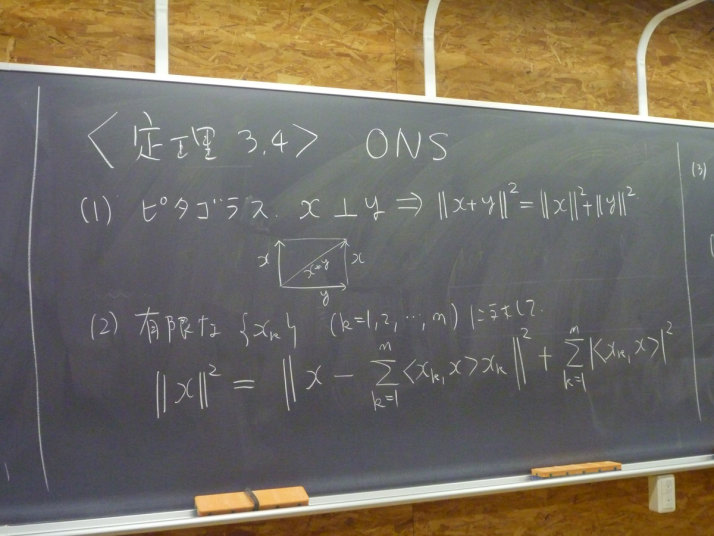 <定理 3.4> ONS
(1) ピタゴラス. x ⊥ y ⇒ ‖x+y‖² = ‖x‖² + ‖y‖²
x x+y x
y
(2) 有限な {xₖ} (k=1,2,…,n) に対して.
‖x‖² = ‖x − ∑ₖ₌₁ⁿ <xₖ, x> xₖ‖² + ∑ₖ₌₁ⁿ |<xₖ, x>|²
(3)